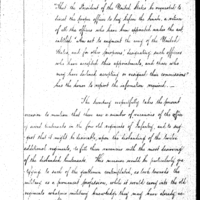 that the President of the United States be requested to
cause the proper officers to lay before the house, a return
of all the officers who have been appointed under the act
entitled "An act to augment the army of the United
States, and for other purposes," designating such officers
who have accepted their appointments, and those who
may have declined accepting or resigned their commissions"
has the honor to report the information required.
The Secretary respectfully takes the present
occasion to mention that there are a number of vacancies of the offices
of some regiments in the four old regiments of Infantry, and to sug-
gest that it might be desirable, upon the disbanding of the twelve
additional regiments, to fill these vacancies with the most deserving
of the disbanded
This measure would be particularly gra-
tifying to such of the gentlemen contemplated, as look towards the
military as a permanent profession, while it would carry into the old
regiments whatever military knowledge they may have already ac-